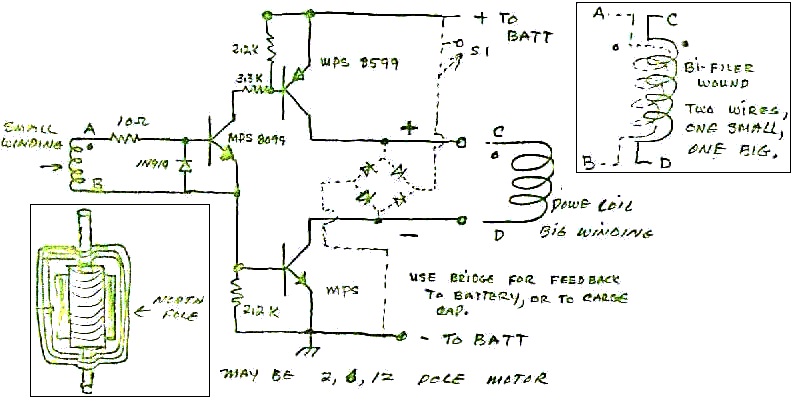 + TO
BATT
S1
2.2K
3.3K
MPS 8599
10Ω
SMALL
WINDING
A
B
1N914
MPS 8099
+
C
D
-
POWE COIL
BIG WINDING
A
C
BI-FILER
WOUND
TWO WIRES,
ONE SMALL,
ONE BIG.
B
D
NORTH
POLE
MPS
2.2K
USE BRIDGE FOR FEEDBACK
TO BATTERY, OR TO CARGE
CAP.
- TO BATT
MAY BE 2, 6, 12 POLE MOTOR